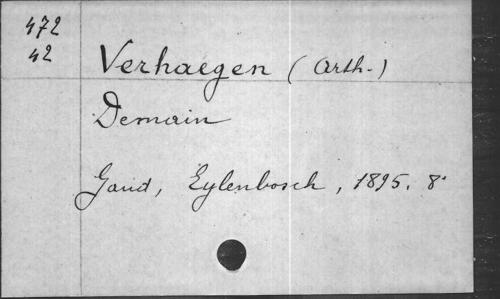 472
42
Verhaegen (Arth.)
Demain
Gand, Eylenbosch, 1895. 8°